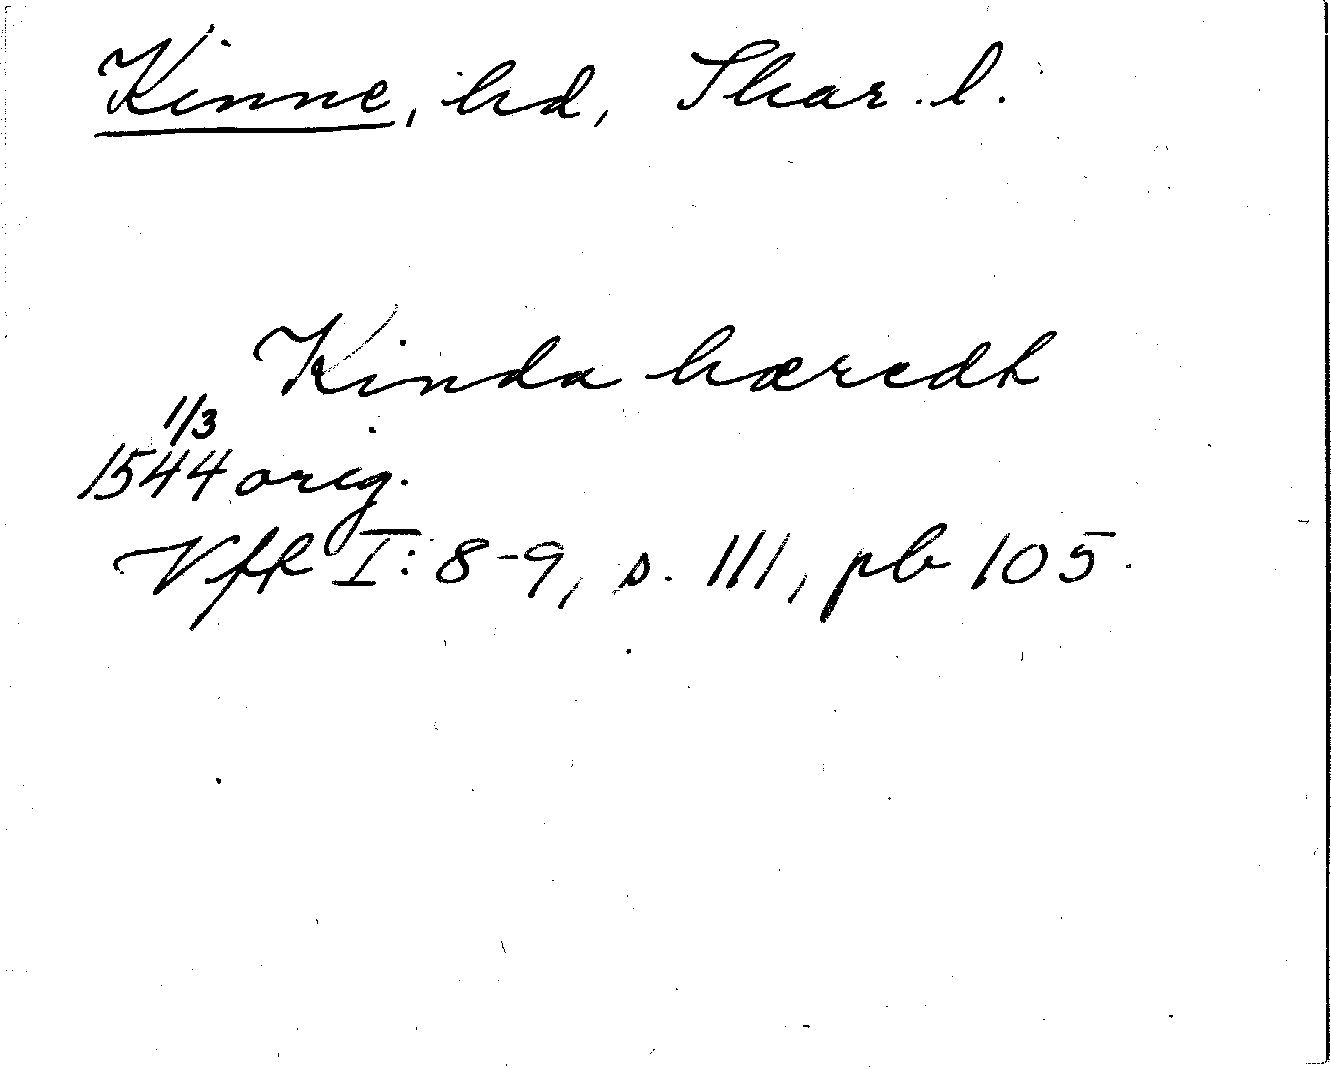 Kinne, hd, Skar. l.
Kinda hæredh
1/3
1544 orig.
Vff I: 8-9, s. 111, pb 105.